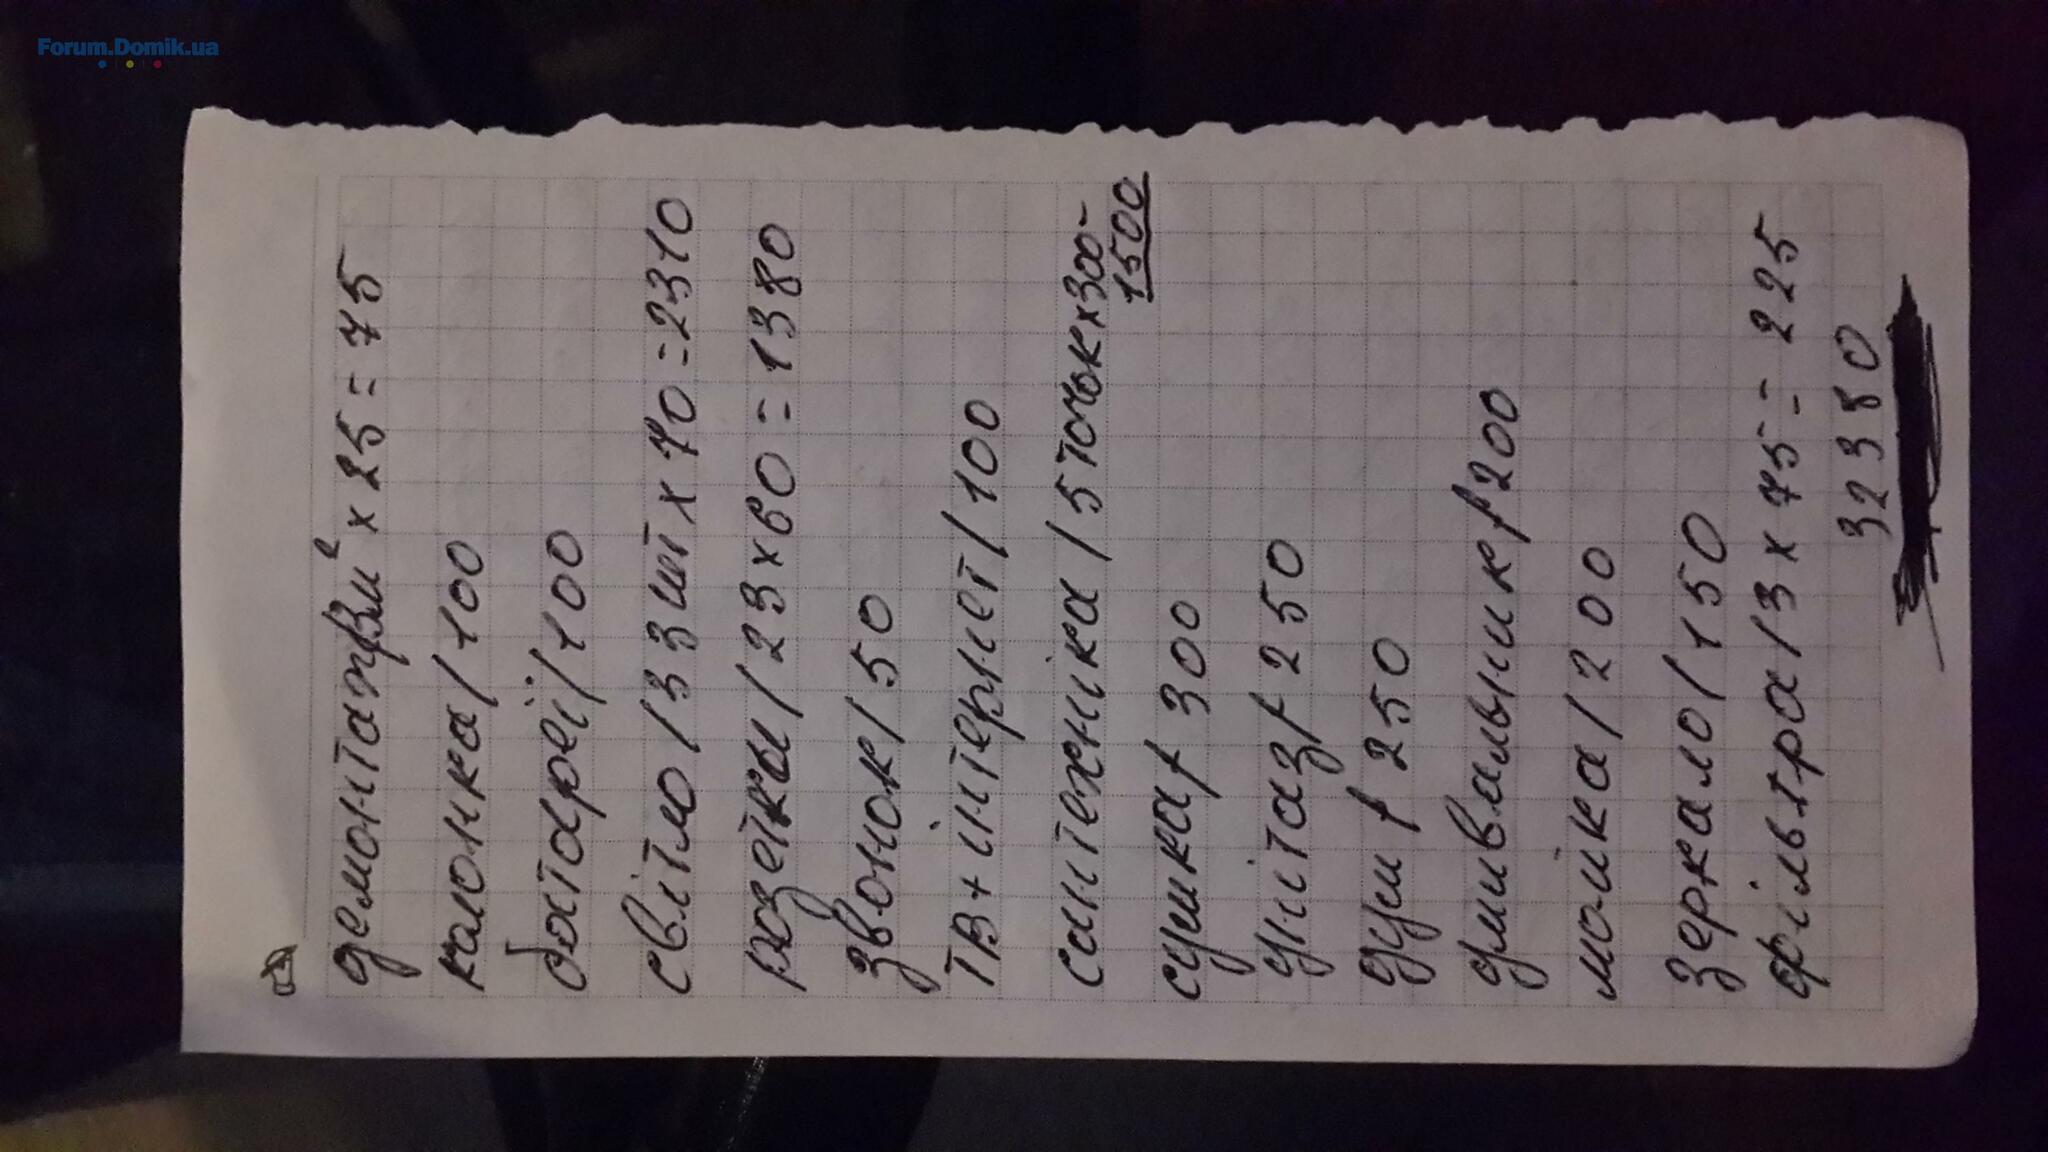 Forum.Domik.ua
демонтаж/3м² x 25 = 75
колонка/100
батареї/100
світло/33шт x 70 = 2310
розетки/23x60 = 1380
звонок/50
ТВ+інтернет/100
сантехніка/5точок x 300-
1500
сушка/300
унітаз/250
душ/250
умивальник/200
мойка/200
зеркало/150
фільтра/3 x 75 = 225
32380